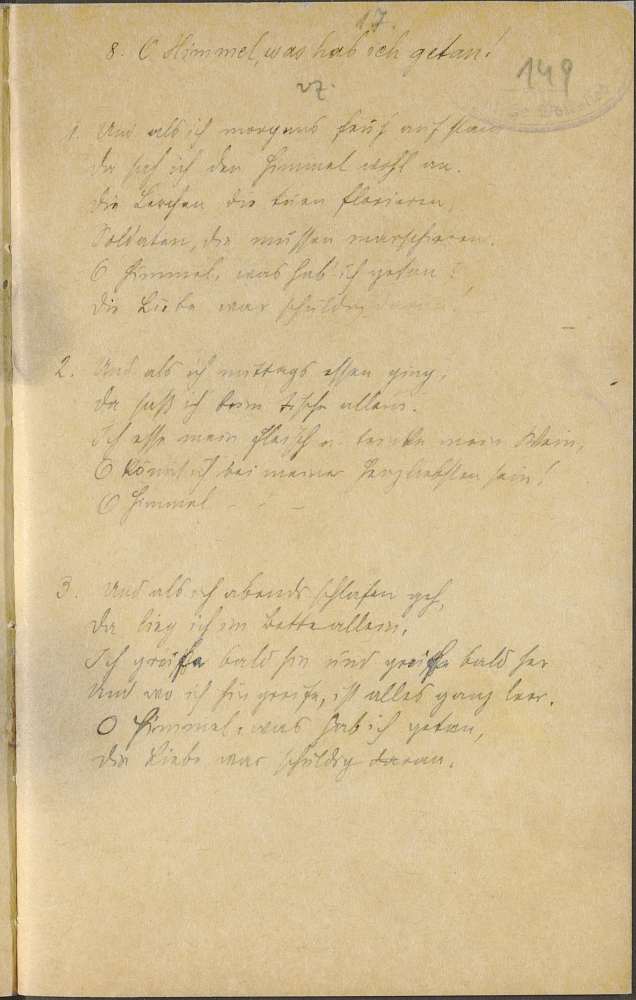 17.
8. O Himmel, was hab ich getan!
149
vz.
1. Und als ich morgens früh auf stand
Da sah ich den Himmel wohl an.
Die Lerchen die tuen florieren,
Soldaten, die müssen marschieren.
O Himmel, was hab ich getan!
Die Liebe war schuldig daran!
2. Und als ich mittags essen ging,
Da saß ich beim Tische allein.
Ich esse mein Fleisch u. trinke mein Wein,
O könnt ich bei meiner Herzliebsten sein!
O Himmel - - -
3. Und als ich abends schlafen geh,
Da lieg ich im Bette allein,
Ich greife bald hin und greife bald her
Und wo ich hin greife, ist alles ganz leer.
O Himmel, was hab ich getan,
Die Liebe war schuldig daran.